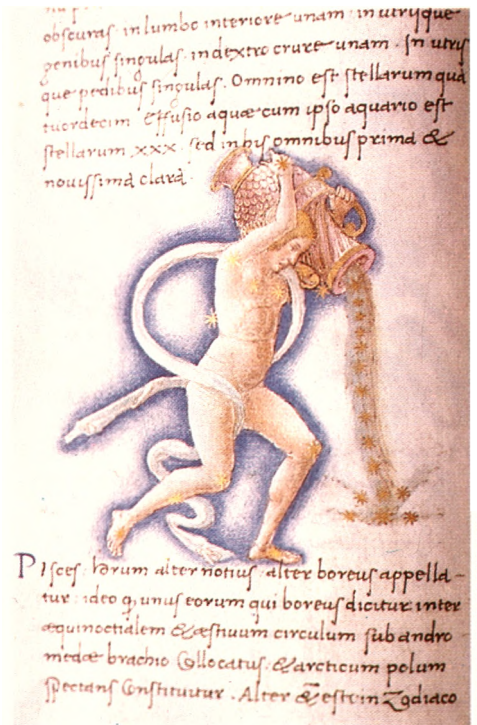 obscuras in lumbo interiore unam in utrisque
genibus singulas. in dextro crure unam. In utris
que pedibus singulas. Omnino est stellarum qua
tuordecim. Effusio aquæ cum ipso aquario est
stellarum .xxx. sed in his omnibus prima &
novissima clara.
Pisces. horum alter notius alter boreus appella-
tur: ideo q, unus eorum qui boreus dicitur inter
æquinoctialem & æstivum circulum sub andro
medæ brachio Collocatus. & arcticum polum
spectans Constituitur. Alter & est in Zodiaco